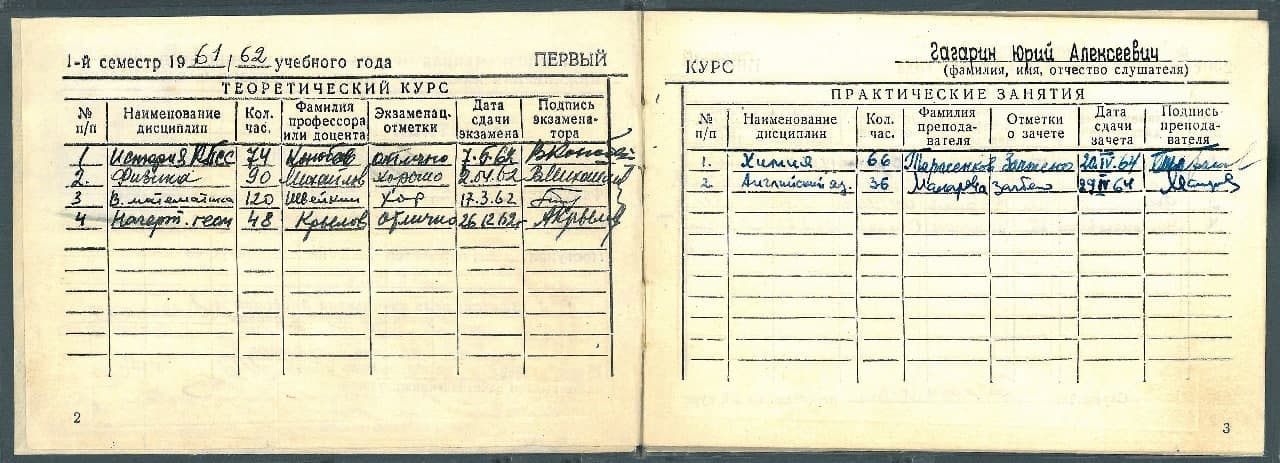 1-й семестр 1961/62 учебного года ПЕРВЫЙ
ТЕОРЕТИЧЕСКИЙ КУРС
№ п/п Наименование дисциплин Кол. час. Фамилия профессора или доцента Экзаменац. отметки Дата сдачи экзамена Подпись экзаменатора
1 История КПСС 74 отлично 7.6.62
2. Физика 90 Михайлов хорошо 2.04.62
3 В. математика 120 Швейкин Хор 17.3.62
4 Начерт. геом 48 Крылов отлично 26.12.62г АКрылов
2
КУРС Гагарин Юрий Алексеевич
(фамилия, имя, отчество слушателя)
ПРАКТИЧЕСКИЕ ЗАНЯТИЯ
№ п/п Наименование дисциплин Кол. час. Фамилия преподавателя Отметки о зачете Дата сдачи зачета Подпись преподавателя
1. Химия 66 Тарасенков Зачтено 20.IV.64
2. Английский яз. 36 Макарова зачтено 29 IV 64
3